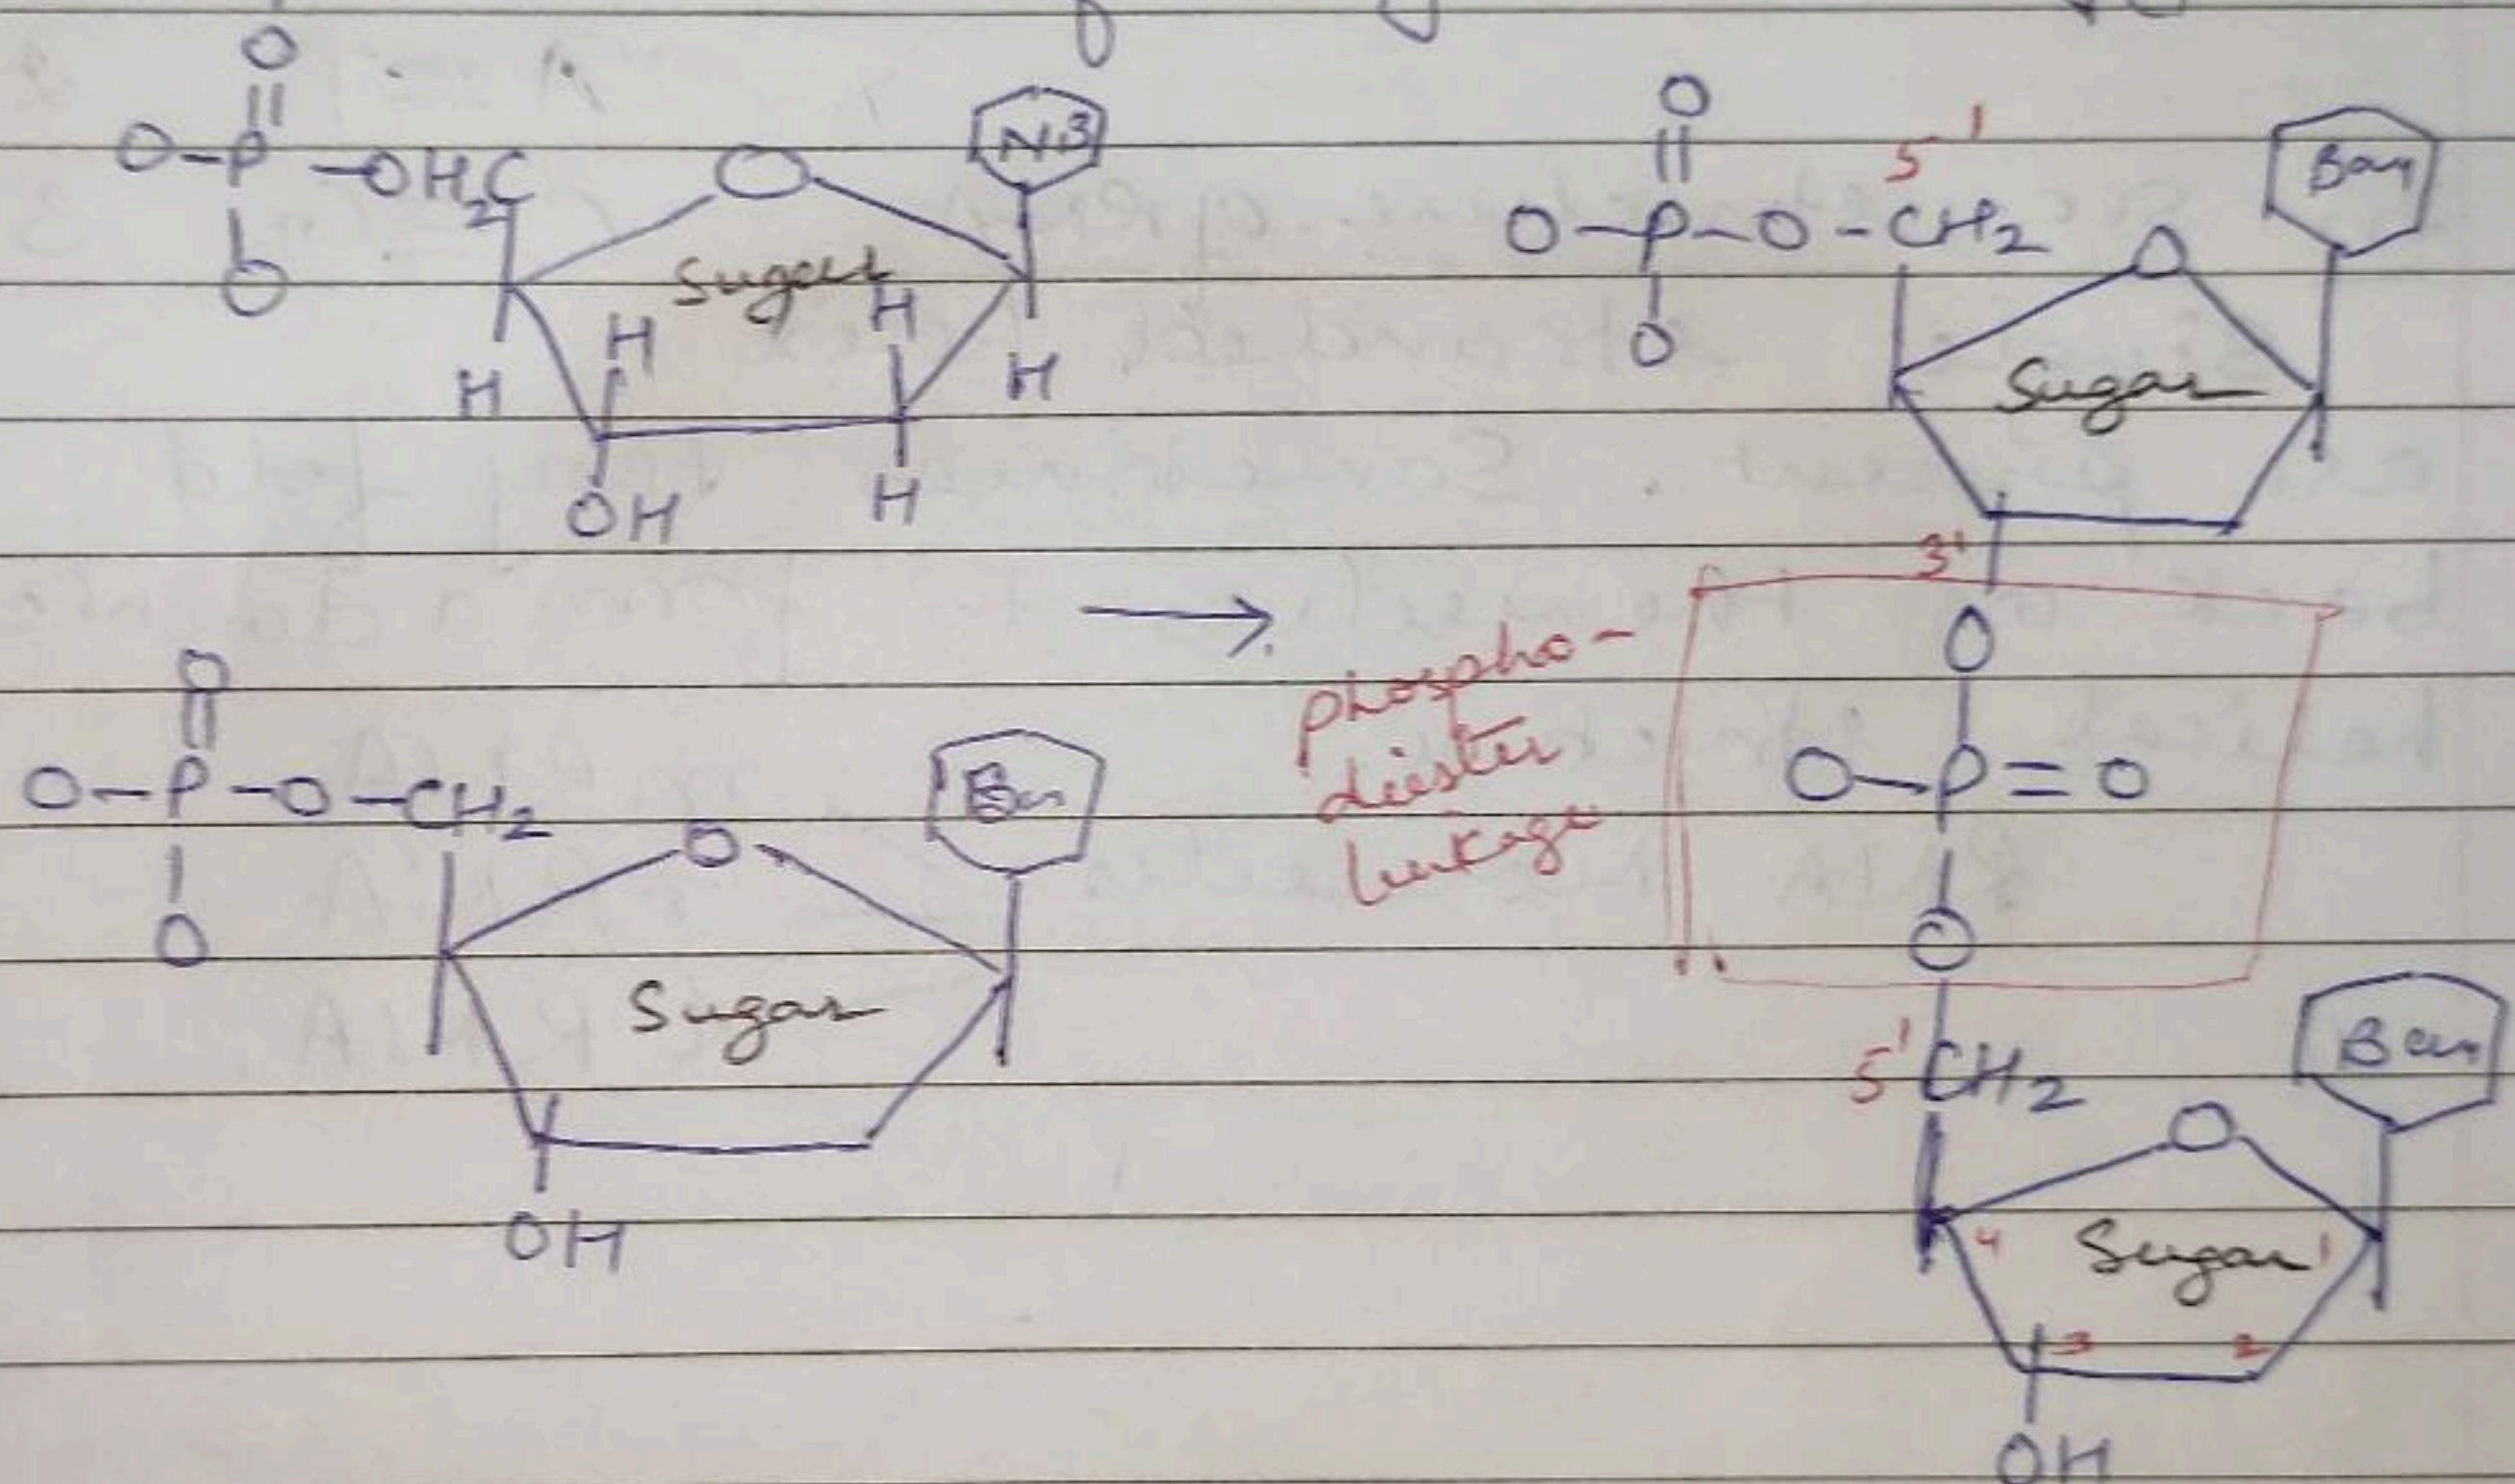 O
||
O-P-OH₂C O NB
Sugar
O
H H H H
OH H
O
||
O-P-O-CH₂ O
Sugar
O
OH
→
O
||
5'
O-P-O-CH₂ O
Sugar
O
3'
phospho-
diester
linkage
O
O-P=O
O
5' CH₂
O
4 Sugar 1
3 2
OH